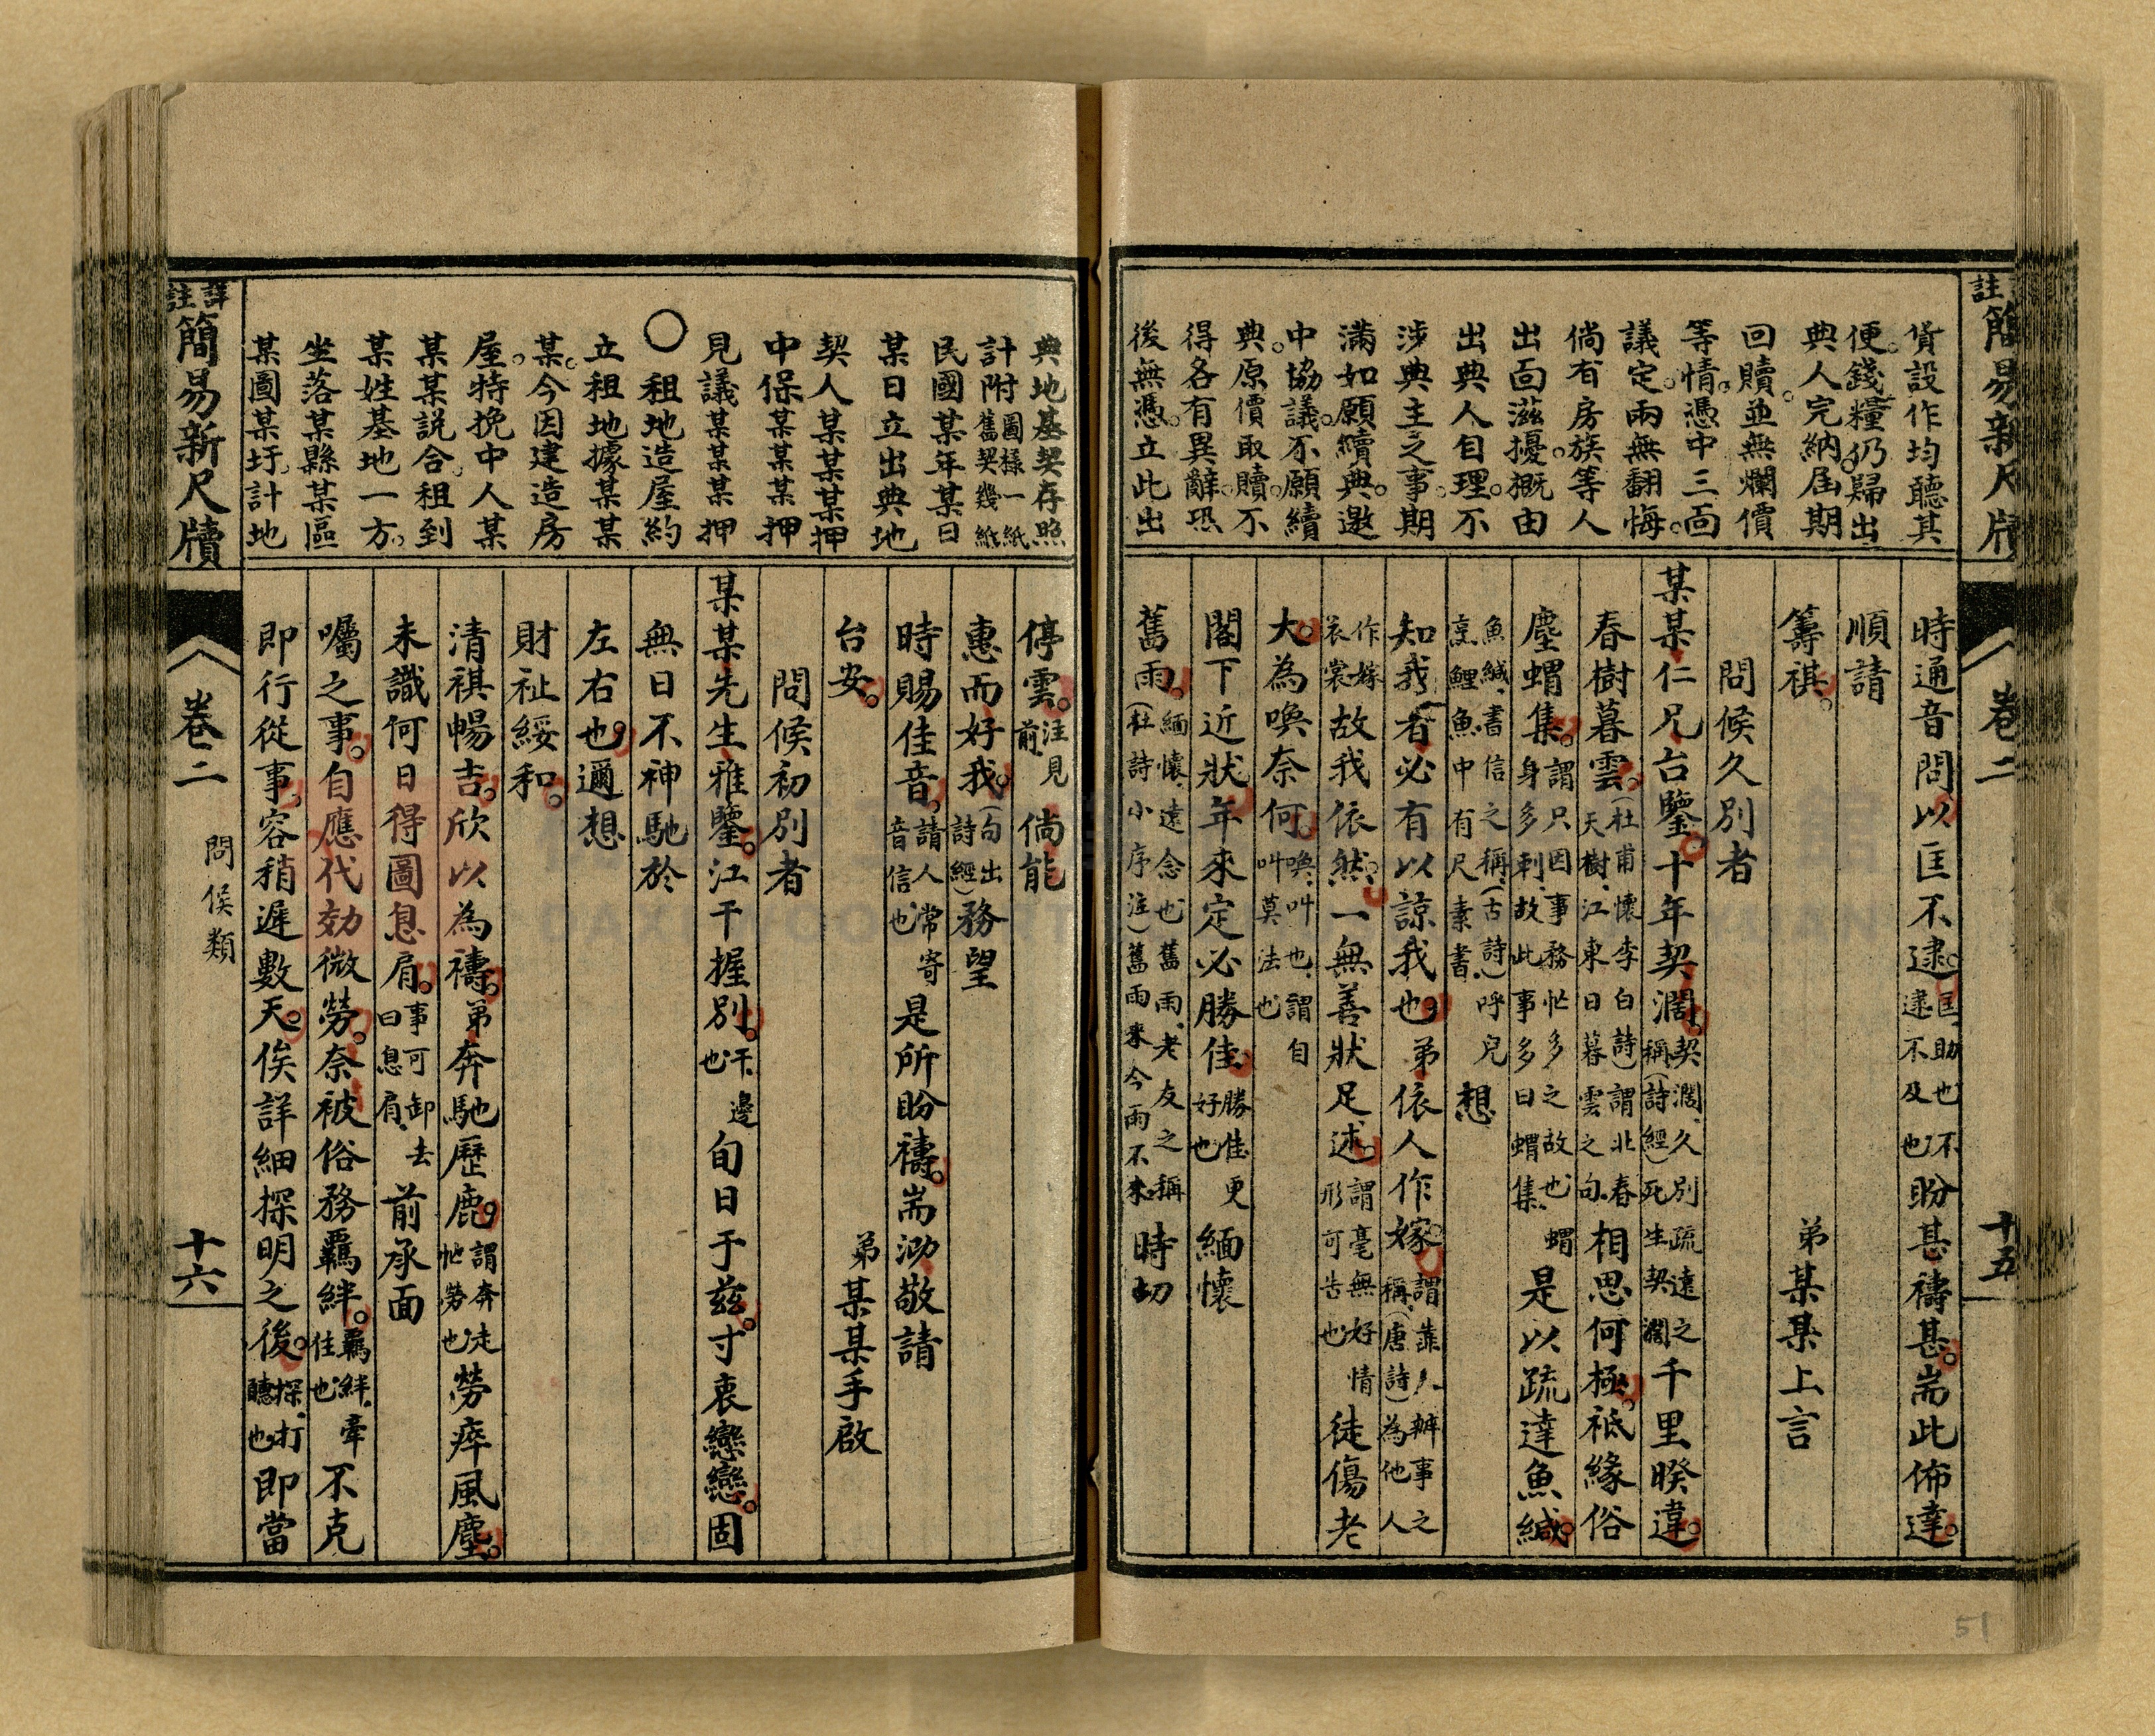 註簡易新尺牘
卷二
十五
貨設作均聽其
便。錢糧仍歸出
典人完納。屆期
回贖。並無爛價
等情。憑中三面
議定。兩無翻悔。
倘有房族等人
出面滋擾。概由
出典人自理。不
涉典主之事。期
滿如願續典。邀
中協議。不願續
典。原價取贖。不
得各有異辭。恐
後無憑。立此出
時通音問以匡不逮。匡、助也不逮不及也盼甚禱甚。耑此佈達。
順請
籌祺。弟某某上言
問候久別者
某某仁兄台鑒。十年契濶。契濶、久別疏遠之稱(詩經)死生契濶千里暌違。
春樹暮雲。(杜甫懷李白詩)謂北春天樹、江東日暮雲之句、相思何極。祗緣俗
塵蝟集。謂只因事務忙多之故也、蝟身多刺、故此事多曰蝟集、是以疏達魚緘。
魚緘、書信之稱、(古詩、)呼兒烹鯉魚、中有尺素書想
知我者必有以諒我也。弟依人作嫁。謂靠人辦事之稱、(唐詩)為他人
作嫁衣裳故我依然。一無善狀足述。謂毫無好情形可告也徒傷老
大。為喚奈何。喚、叫也、謂自叫莫法也
閣下近狀年來定必勝佳。勝佳更好也緬懷
舊雨。緬懷、遠念也舊雨、老友之稱(杜詩小序注)舊雨來今雨不來時切
典地基契存照
計附圖樣一紙舊契幾紙
民國某年某日
某日立出典地
契人某某某押
中保某某某押
見議某某某押
〇租地造屋約
立租地據某某
某。今因建造房
屋。特挽中人某
某某說合。租到
某姓基地一方。
坐落某縣某區
某圖某圩。計地
停雲。注見前倘能
惠而好我。(句出詩經)務望
時賜佳音。請人常寄音信也是所盼禱。耑泐敬請
台安。弟某某手啟
問候初別者
某某先生雅鑒。江干握別。干、邊也旬日于兹。寸衷戀戀。固
無日不神馳於
左右也。邇想
財祉綏和。
清祺暢吉。欣以為禱。弟奔馳歷鹿。謂奔走忙勞也勞瘁風塵。
未識何日得圖息肩。事可卸去曰息肩、前承面
囑之事。自應代効微勞。奈被俗務羈絆。羈絆、牽住也不克
即行從事。容稍遲數天。俟詳細探明之後。探、打聽也即當
詳註簡易新尺牘
卷二
問候類
十六
51